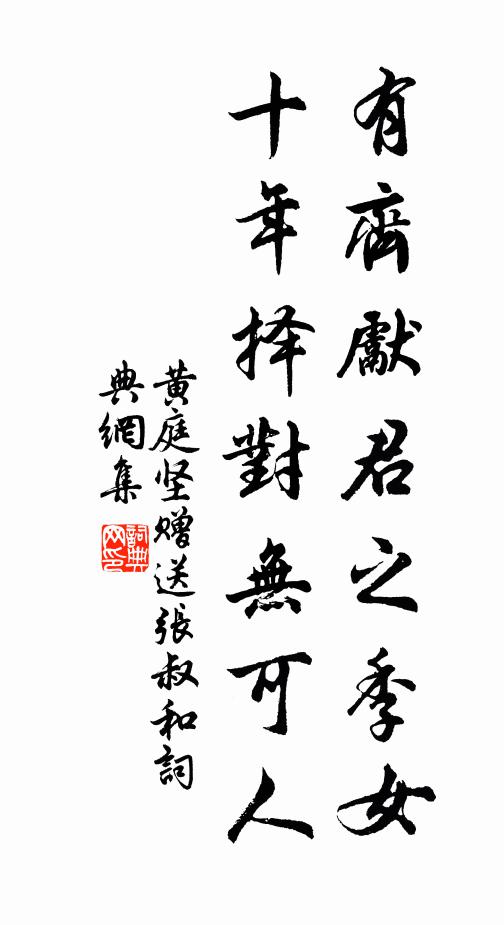 有齊獻君之季女
十年择對無可人
黄庭坚赠送張叔和詞
典網集
詞典
网印